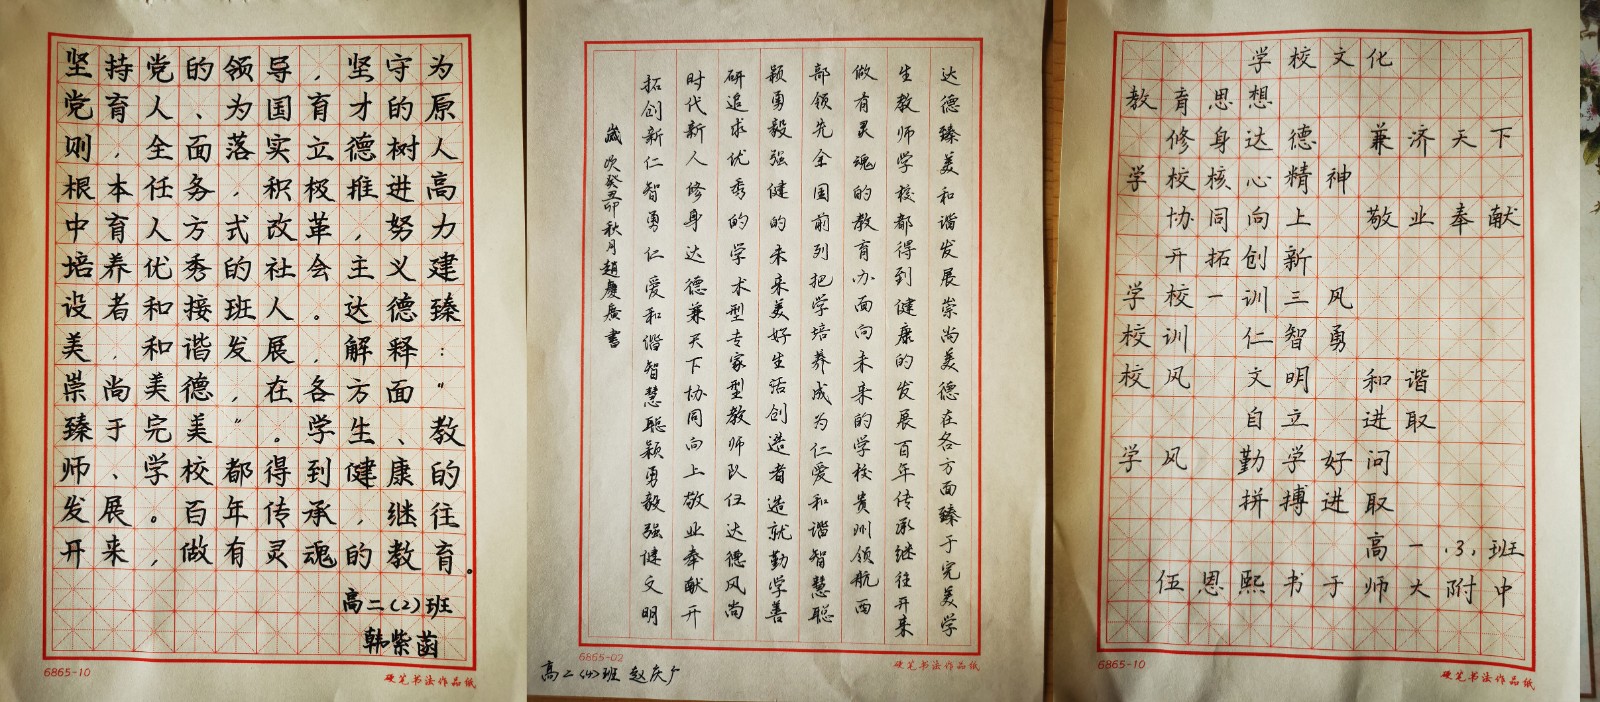 坚持党的领导，坚守为
党育人、为国育才的原
则，全面落实立德树人
根本任务，积极推进高
中育人方式改革，努力
培养优秀的社会主义建
设者和接班人。达德臻
美，和谐发展，解释：
崇尚美德，在各方面“
臻于完美”。学生、教
师、学校都得到健康的
发展。百年传承，继往
开来，做有灵魂的教育。
高二（2）班
韩紫菡
6865-10
硬笔书法作品纸
达德臻美和谐发展崇尚美德在各方面臻于完美学
生教师学校都得到健康的发展百年传承继往开来
做有灵魂的教育办面向未来的学校贵州领航西
部领先全国前列把学培养成为仁爱和谐智慧聪
颖勇毅强健的未来美好生活创造者造就勤学善
研追求优秀的学术型专家型教师队伍达德风尚
时代新人修身达德兼天下协同向上敬业奉献开
拓创新仁智勇仁爱和谐智慧聪颖勇毅强健文明
歲次癸丑卯秋月趙慶廣書
6865-02
硬笔书法作品纸
高二（4）班 赵庆广
学校文化
教育思想
修身达德 兼济天下
学校核心精神
协同向上 敬业奉献
开拓创新
学校一训三风
校训 仁智勇
校风 文明 和谐
自立 进取
学风 勤学好问
拼搏进取
高一（3）班
伍恩熙书于师大附中
6865-10
硬笔书法作品纸